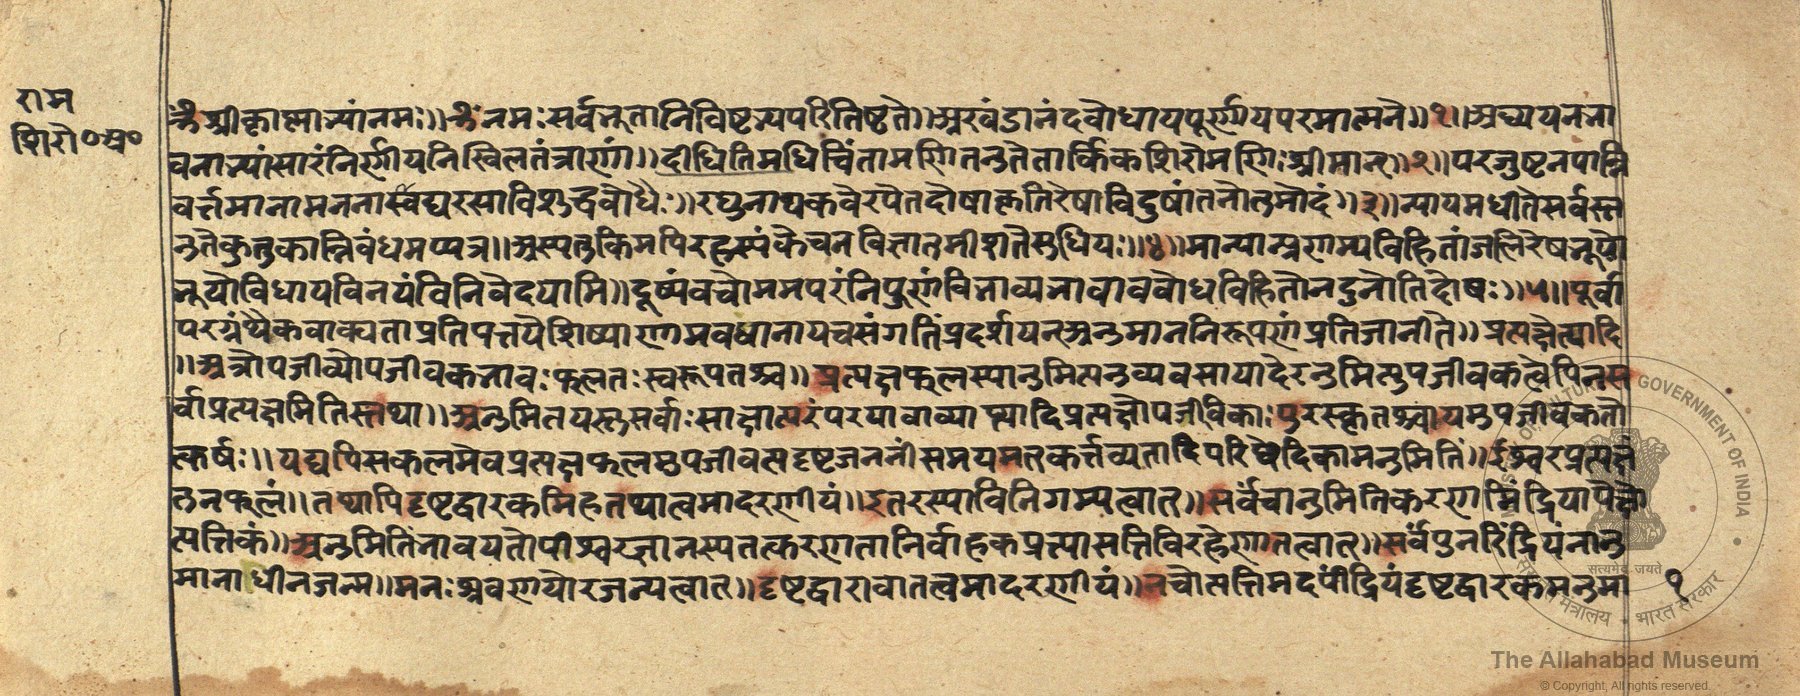 राम
शिरो०अ०
ॐ श्रीकृष्णाभ्यांनमः॥ ॐ नमः सर्वभूतानि विष्टभ्य परितिष्टते॥ अखंडानंदबोधाय पूर्णाय परमात्मने॥१॥ अध्ययनभा
वनाभ्यां सारं निर्णीय निखिलतंत्राणां॥ दीधितिमधिचिंतामणि तनुते तार्किकशिरोमणिः श्रीमान्॥२॥
मानामनना स्वाद्यरसाविशुद्धबोधैः॥ रघुनाथकवेरपेतदोषा कृतिरेषा विदुषां तनोतु मोदं॥३॥ न्यायमधीते सर्वस्त
नुते कुतुकान्निबंधमप्यत्र॥ अस्य तु किमपि रहस्यं केचन विज्ञातुमीशते सुधियः॥४॥ मान्यान्प्रणम्य विहितांजलिरेष भूयो
भूयो विधाय विनयं विनिवेदयामि॥ दूष्यं वचो मम परं निपुणं विभाव्य भावावबोधविहितो न दुनोति दोषः॥५॥ पूर्वा
परग्रंथैकवाक्यताप्रतिपत्तये शिष्याणामवधानाय च संगतिं प्रदर्शयन् अनुमाननिरूपणं प्रतिजानीते॥ प्रत्यक्षेत्यादि
॥ अत्रोपजीव्योपजीवकभावः फलतः स्वरूपतश्च॥ प्रत्यक्षफलस्यानुमित्यनुव्यवसायादेरनुमित्युपजीवकत्वेपि न स
र्वा प्रत्यक्षमितिस्तथा॥ अनुमितयस्तु सर्वाः साक्षात्परंपरया वा व्याप्त्यादिप्रत्यक्षोपजीविकाः पुरस्कृतश्चायमुपजीवकतो
त्कर्षः॥ यद्यपि सकलमेव प्रत्यक्षफलमुपजीवत्यदृष्टजननीं समयमतकर्त्तव्यतादिपरिछेदिकामनुमितिं॥ ईश्वरप्रत्यक्षं
तु न फलं॥ तथापि दृष्टद्वारकमिह तथात्वमादरणीयं॥ इतरस्याविनिगम्यत्वात्॥ सर्वं चानुमितिकरणमिंद्रियापेक्षो
त्पत्तिकं॥ अनुमितिं भावयतोपीश्वरज्ञानस्य तत्करणतानिर्वाहकप्रत्यासत्तिविरहेणातत्वात्॥ सर्वं पुनरिंद्रियं नानु
मानाधीनजन्म॥ मनःश्रवणयोरजन्यत्वात्॥ दृष्टद्वारा वा तत्वमादरणीयं॥ न चोत्पत्तिमदपींद्रियं दृष्टद्वारकमनुमा
१
The Allahabad Museum
© Copyright, All rights reserved
GOVERNMENT OF INDIA
सत्यमेव जयते
भारत सरकार